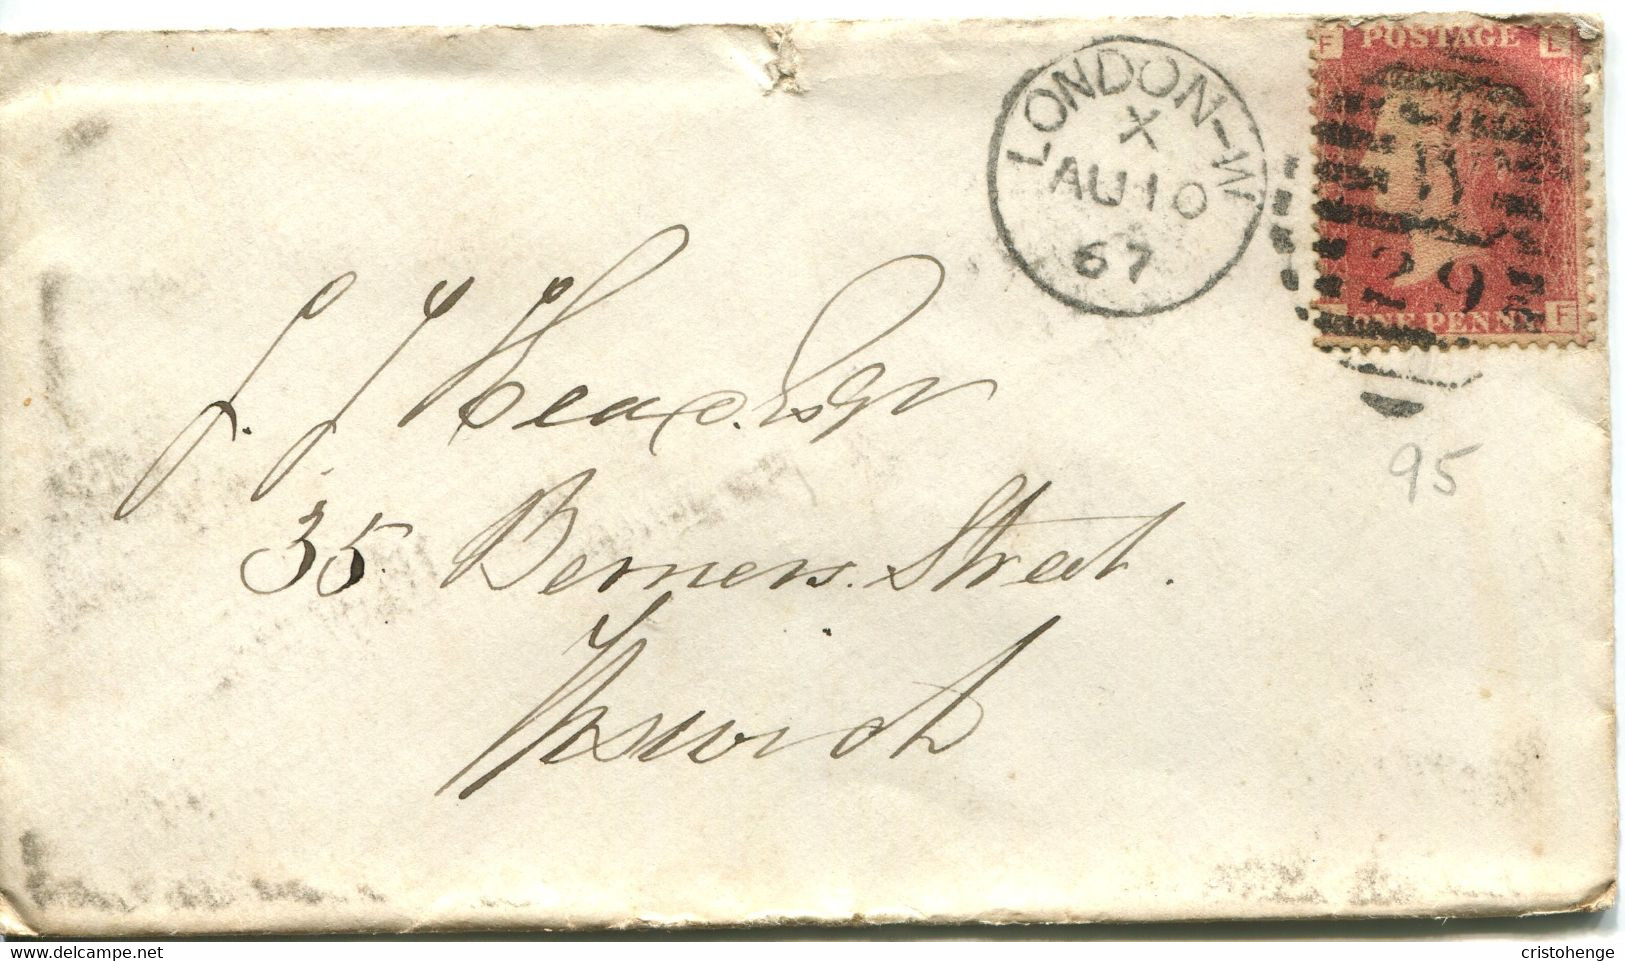 LONDON-W
X
AU 10
67
F POSTAGE L
29
ONE PENNY F
95
J. J. Head. Esqr
35 Berners. Street.
Ipswich
delcampe.net
cristohenge